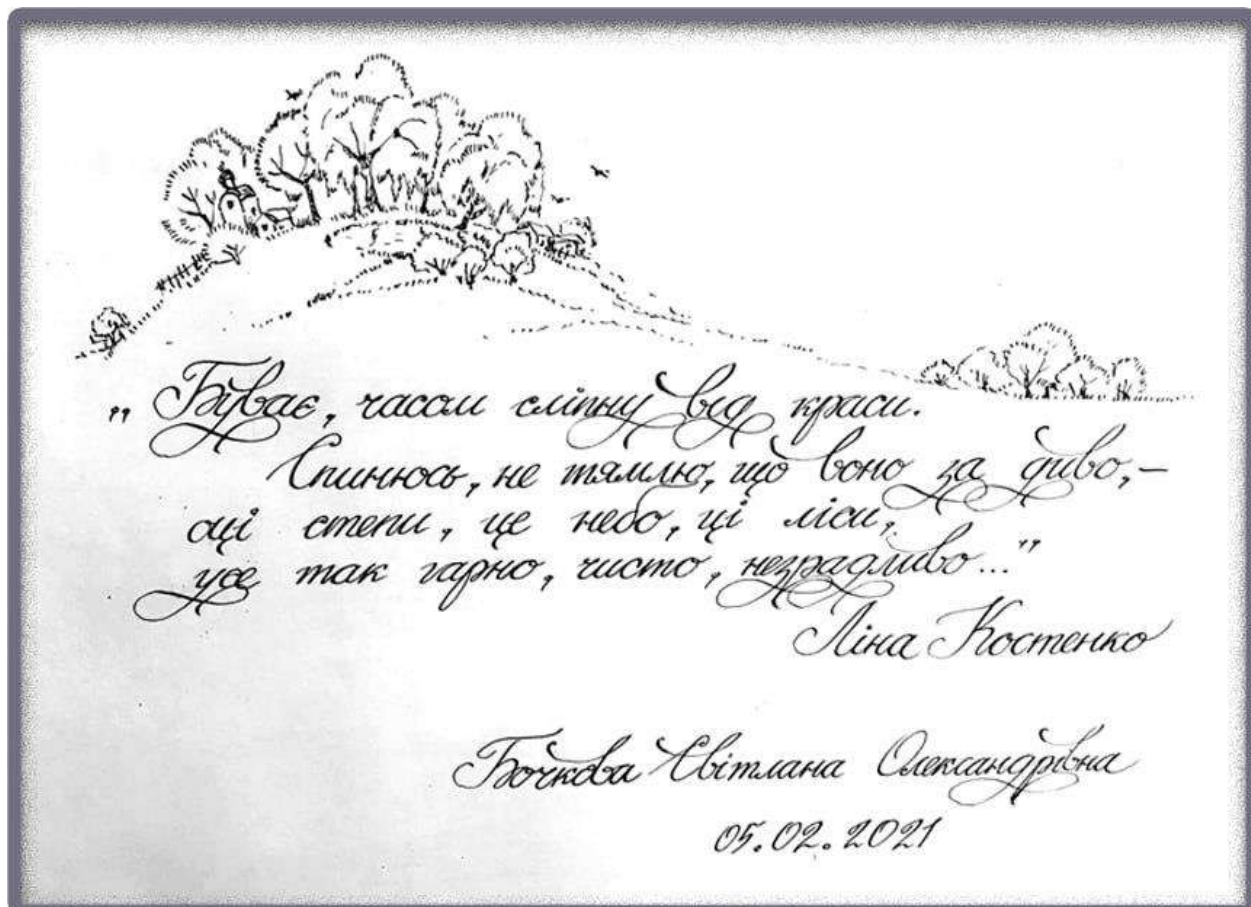 „Буває, часом сліпну від краси.
Спинюсь, не тямлю, що воно за диво,–
оці степи, це небо, ці ліси,
усе так гарно, чисто, незрадливо..."
Ліна Костенко
Бочкова Світлана Олександрівна
05.02.2021